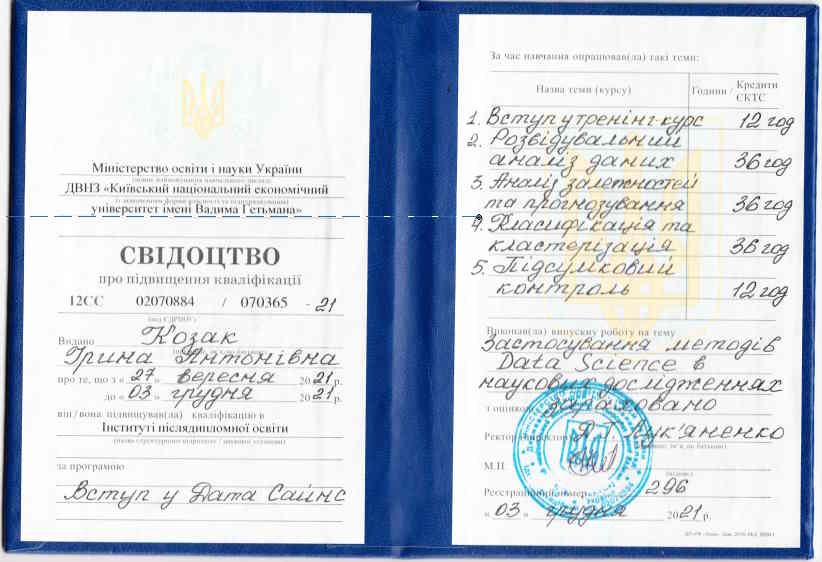 Міністерство освіти і науки України
(повне найменування навчального закладу
ДВНЗ «Київський національний економічний
університет імені Вадима Гетьмана»
СВІДОЦТВО
про підвищення кваліфікації
12СС 02070884 / 070365 - 21
(код ЄДРПОУ)
Видано Козак
Ірина Антонівна
про те, що з « 27 » вересня 2021 р.
до « 03 » грудня 2021 р.
він/вона підвищував(ла) кваліфікацію в
Інституті післядипломної освіти
за програмою
Вступ у Дата Сайнс
За час навчання опрацював(ла) такі теми:
Назва теми (курсу) Години / Кредити
ЄКТС
1. Вступ у тренінг-курс 12 год
2. Розвідувальний
аналіз даних 36 год
3. Аналіз залежностей
та прогнозування 36 год
4. Класифікація та
кластерізація 36 год
5. Підсумковий
контроль 12 год
Виконав(ла) випускну роботу на тему
Застосування методів
Data Science в
наукових дослідженнях
з оцінкою зараховано
Ректор Д.Г. Лук'яненко
М.П.
(підпис)
Реєстраційний номер 296
« 03 » грудня 2021 р.